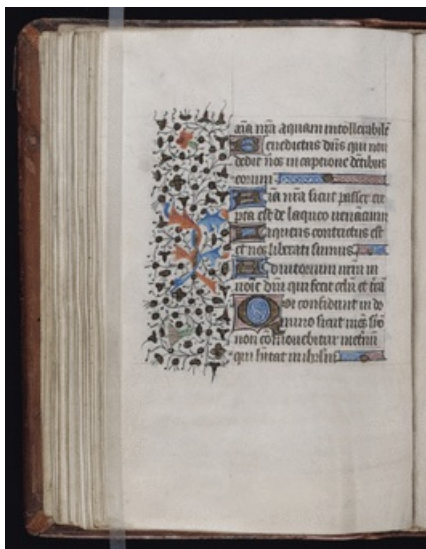 aīa nr̄a aquam intollerabilē
Benedictus dn̄s qui non
dedit nos in captione dētibus
eorum
Aīa nr̄a sicut passer ere
pta est de laqueo uenātium
Laqueus contritus est
et nos liberati sumus
Adiutorium nr̄m in
noīe dn̄i qui fecit celū et trā
Qui confidunt in do
mino sicut mōs syō
non cōmouebitur ī eternū
qui hītat in ihrlm̄